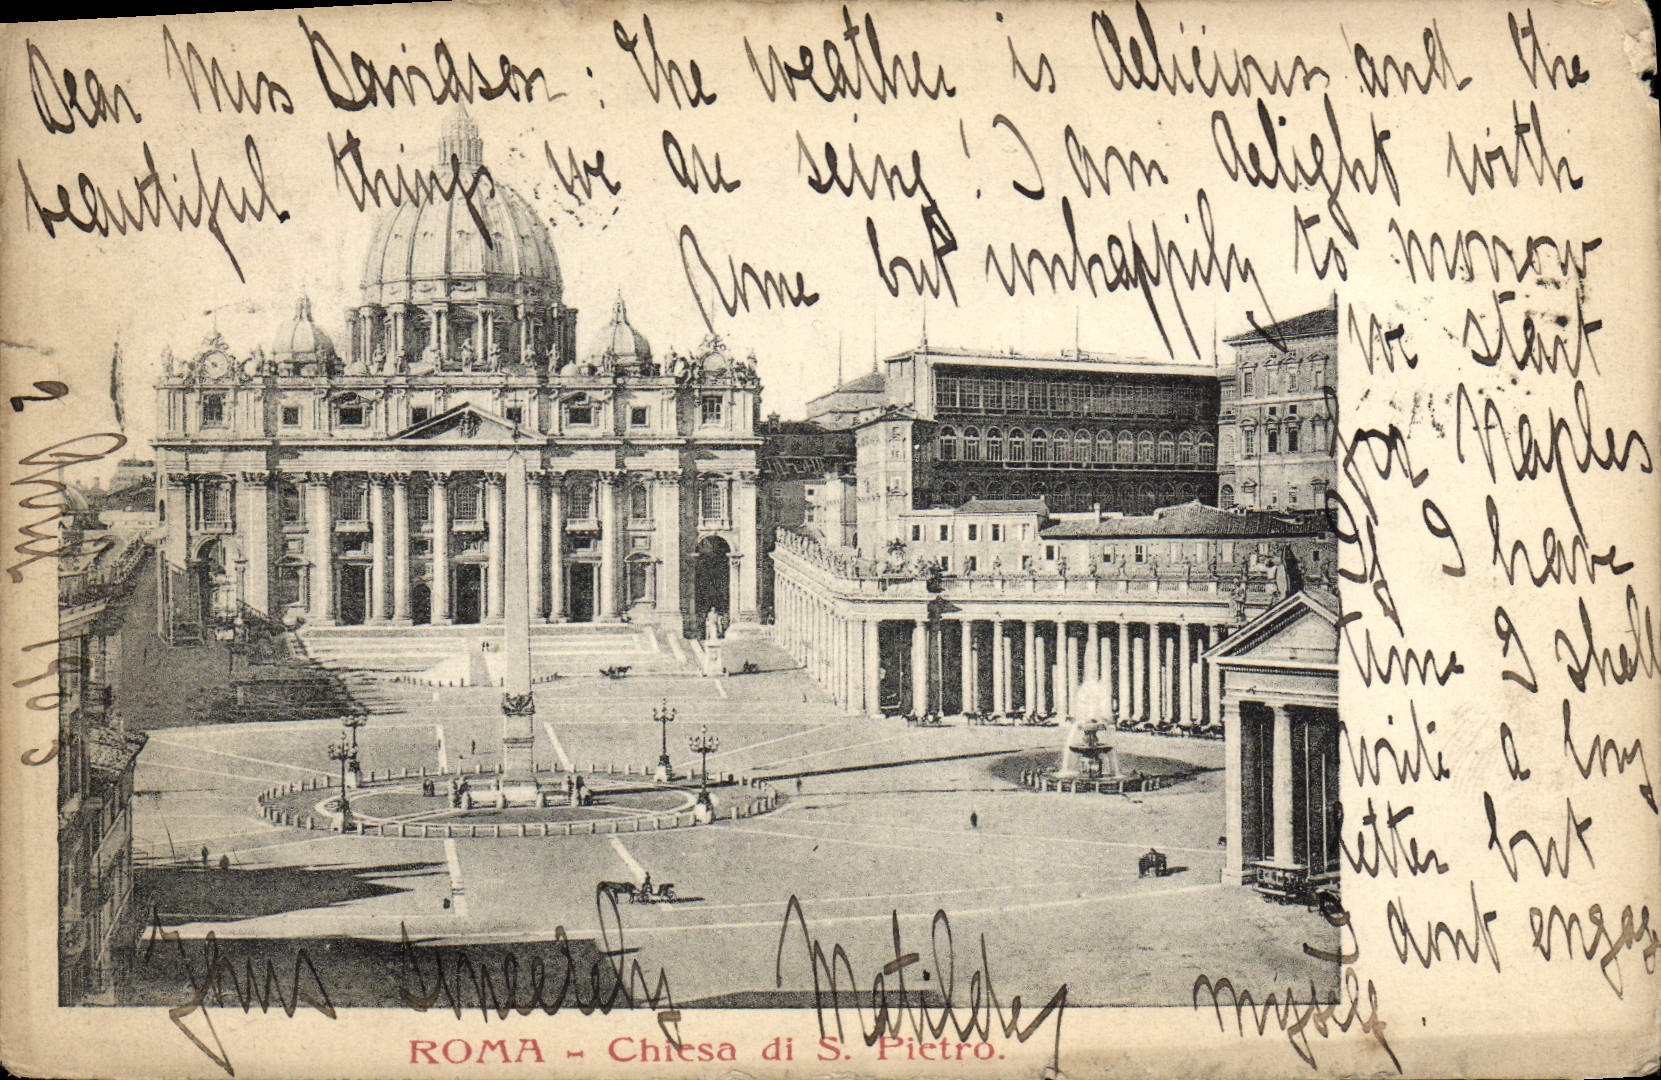 Dear Mrs Davidson: The weather is delicious and the
beautiful things we are seing! I am delight with
Rome but unhappily to morrow
we start
for Naples
If I have
time I shall
write a long
letter but
I dont engage
myself.
Yours sincerely Matilde
ROMA - Chiesa di S. Pietro.